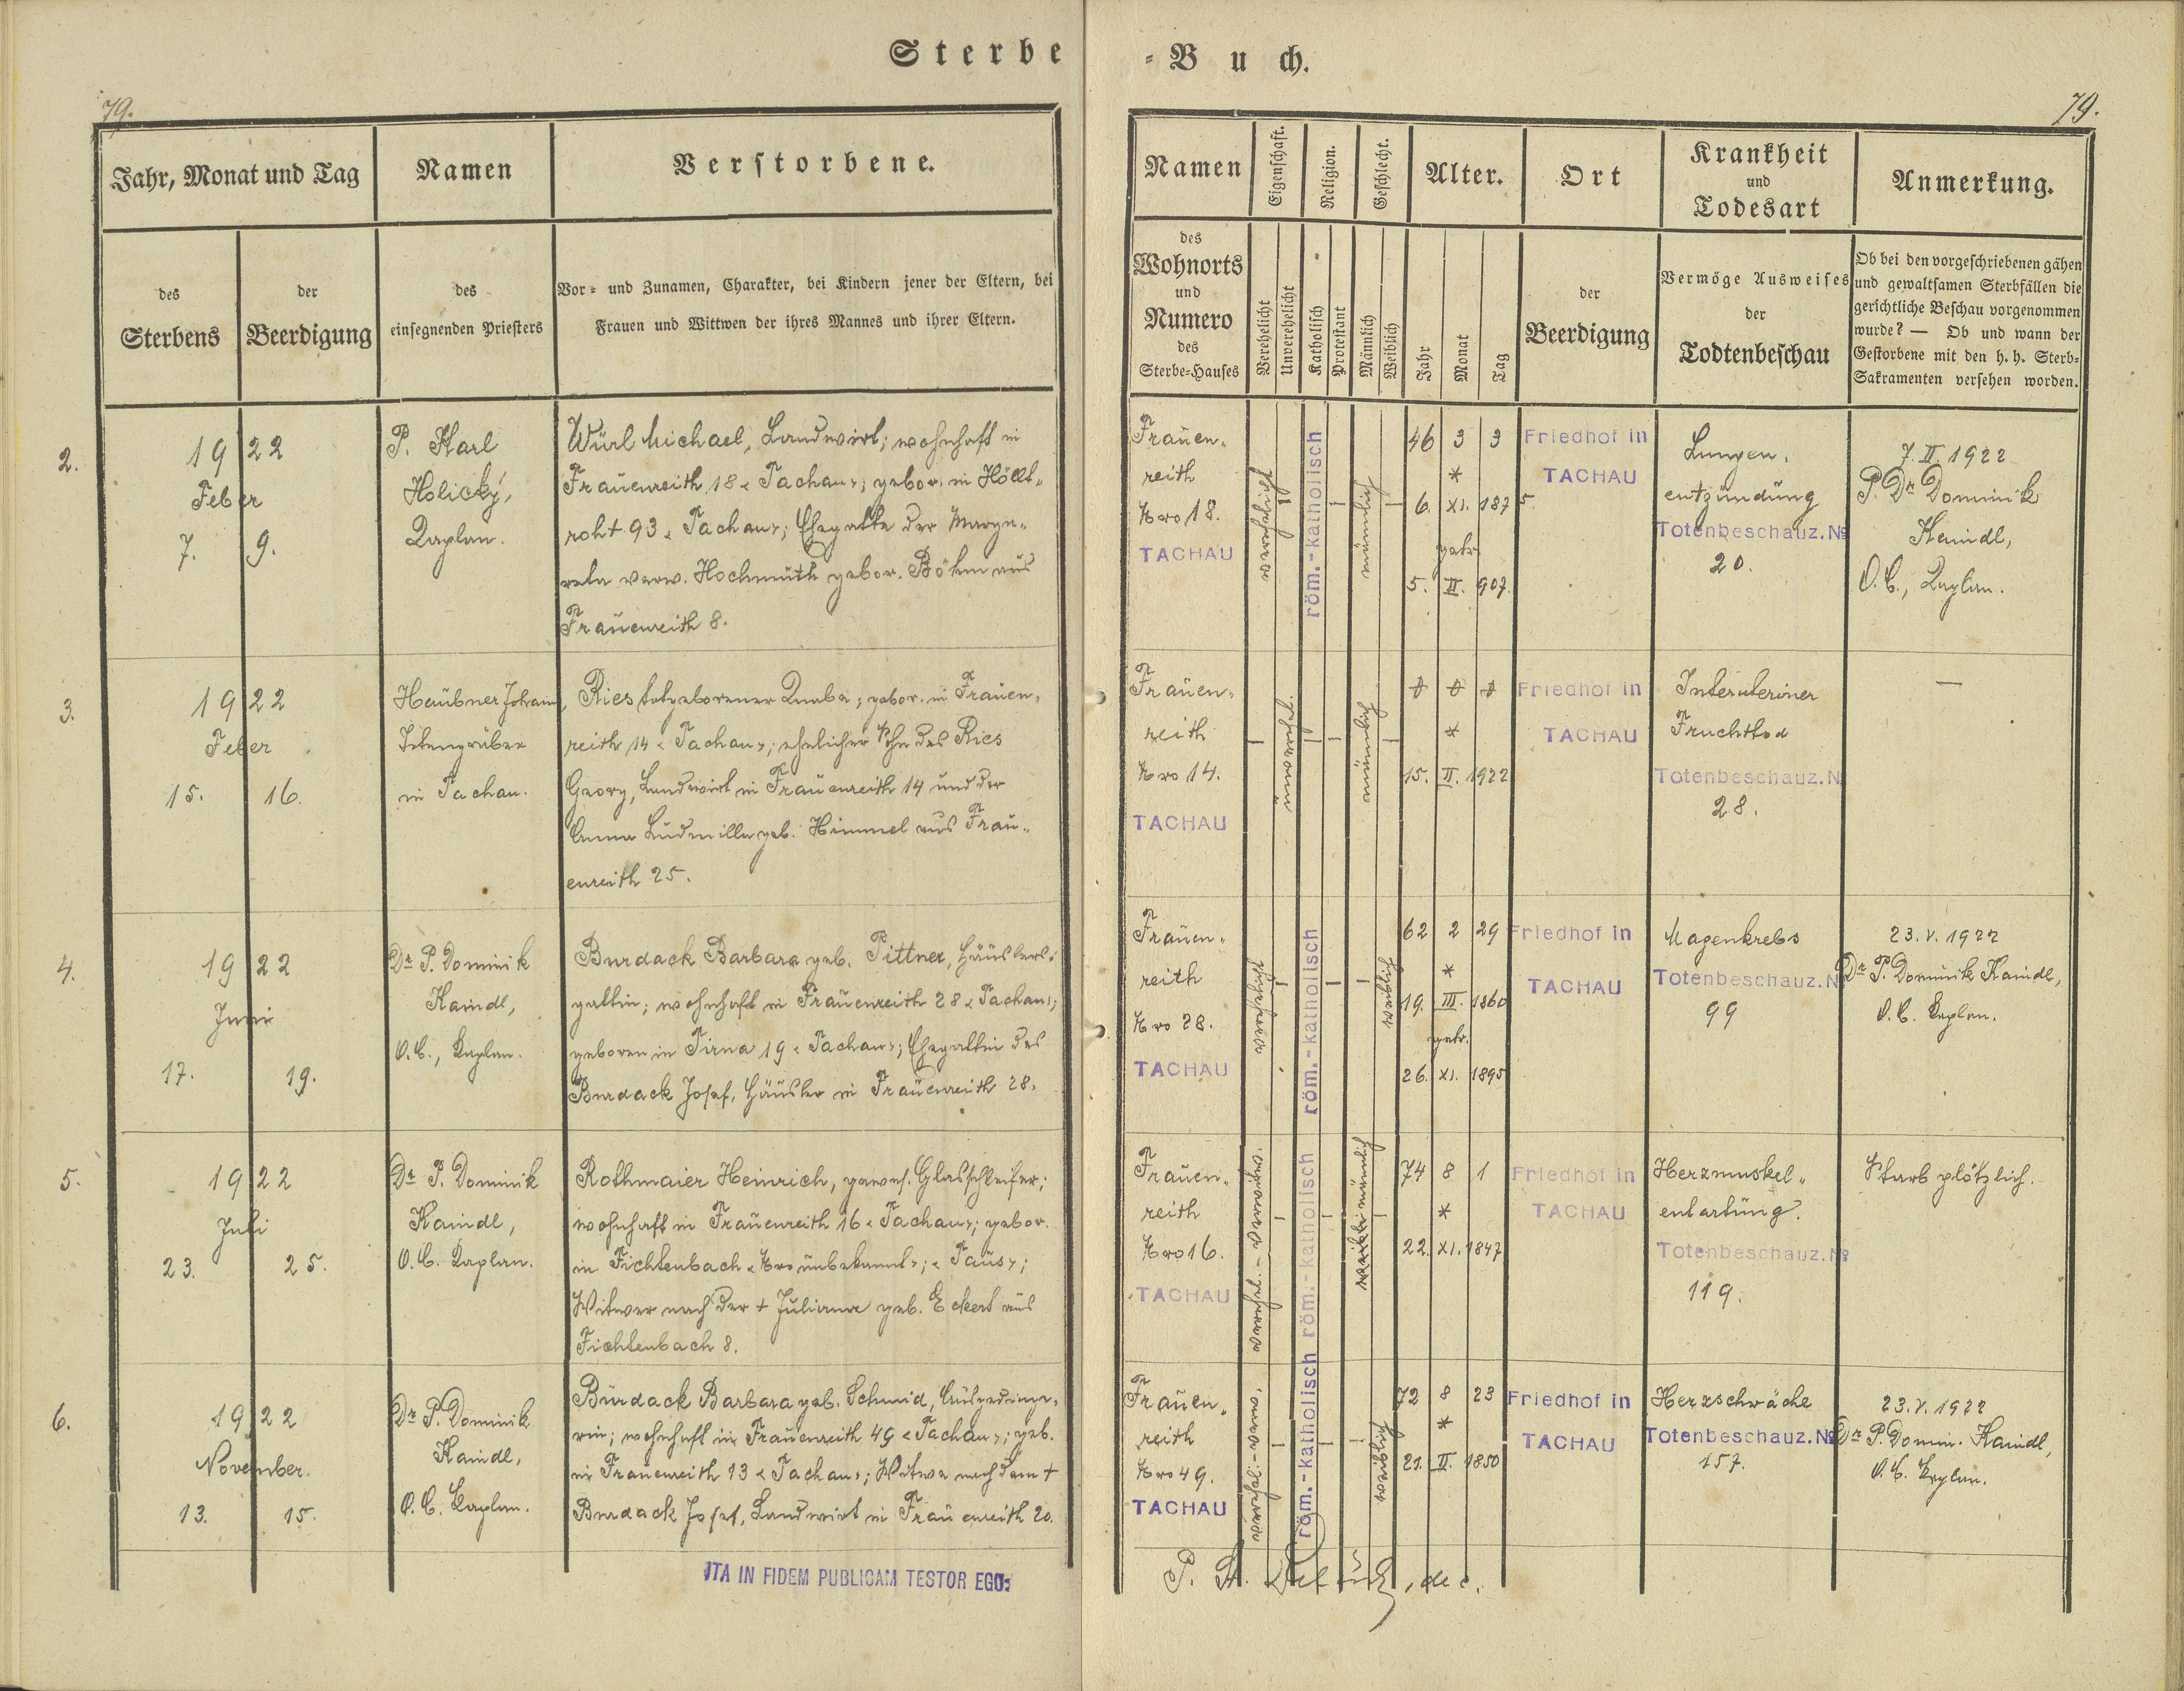 Sterbe-Buch.
79.
79.
Jahr, Monat und Tag
Namen
Verstorbene.
des
Sterbens
der
Beerdigung
des
einsegnenden Priesters
Vor- und Zunamen, Charakter, bei Kindern jener der Eltern, bei
Frauen und Wittwen der ihres Mannes und ihrer Eltern.
Namen
Eigenschaft.
Religion.
Geschlecht.
Alter.
Ort
Krankheit
und
Todesart
Anmerkung.
des
Wohnorts
und
Numero
des
Sterbe-Hauses
Verehelicht
Unverehelicht
Katholisch
Protestant
Männlich
Weiblich
Jahr
Monat
Tag
der
Beerdigung
Vermöge Ausweises
der
Todtenbeschau
Ob bei den vorgeschriebenen gähen
und gewaltsamen Sterbfällen die
gerichtliche Beschau vorgenommen
wurde? — Ob und wann der
Gestorbene mit den h. h. Sterb-
Sakramenten versehen worden.
2.
1922
Feber
7. 9.
P. Karl
Holický,
Kaplan.
Würl Michael, Landwirt; wohnhaft in
Frauenreith 18 "Tachau"; gebor. in Höllt-
roht 93 "Tachau"; Ehegatte der Marga-
reta verw. Hochmuth gebor. Böhm aus
Frauenreith 8.
Frauen-
reith
Nro 18.
TACHAU
verehelicht
röm.-katholisch
männlich
46 3 3
*
6. XI. 1875.
getr.
5. II. 907.
Friedhof in
TACHAU
Lungen-
entzündung
Totenbeschauz. No
20.
7. II. 1922
P. Dr Dominik
Kaindl,
O.C., Kaplan.
3.
1922
Feber
15. 16.
Haubner Johann,
Totengräber
in Tachau.
Ries totgeborener Knabe; gebor. in Frauen-
reith 14 "Tachau"; ehelicher Sohn des Ries
Georg, Landwirt in Frauenreith 14 und der
Anna Ludmilla geb. Himmel aus Frau-
enreith 25.
Frauen-
reith
Nro 14.
TACHAU
männlich
0 0 0
*
15. II. 1922
Friedhof in
TACHAU
Interuteriner
Fruchttod
Totenbeschauz. N
28.
—
4.
1922
Juni
17. 19.
Dr P. Dominik
Kaindl,
O.C., Kaplan.
Burdack Barbara geb. Pittner, Häuslers-
gattin; wohnhaft in Frauenreith 28 "Tachau";
geboren in Pirna 19 "Tachau"; Ehegattin des
Burdack Josef, Häusler in Frauenreith 28.
Frauen-
reith
Nro 28.
TACHAU
verehelicht
röm.-katholisch
weiblich
62 2 29
*
19. III. 1860
getr.
26. XI. 1895
Friedhof in
TACHAU
Magenkrebs
Totenbeschauz. N
99
23. V. 1922
Dr P. Dominik Kaindl,
O.C. Kaplan.
5.
1922
Juli
23. 25.
Dr P. Dominik
Kaindl,
O.C. Kaplan.
Rothmaier Heinrich, gewes. Glasschleifer;
wohnhaft in Frauenreith 16 "Tachau"; gebor.
in Fichtenbach "Nro unbekannt"; "Taus";
Witwer nach der + Juliana geb. Eckert aus
Fichtenbach 8.
Frauen-
reith
Nro 16.
TACHAU
röm.-katholisch
männlich
74 8 1
*
22. XI. 1847
Friedhof in
TACHAU
Herzmuskel-
entartung.
Totenbeschauz. No
119.
Starb plötzlich.
6.
1922
November.
13. 15.
Dr P. Dominik
Kaindl,
O.C. Kaplan.
Burdack Barbara geb. Schmid, Ausgedinge-
rin; wohnhaft in Frauenreith 49 "Tachau"; geb.
in Frauenreith 13 "Tachau"; Witwe nach dem +
Burdack Josef, Landwirt in Frauenreith 20.
Frauen-
reith
Nro 49.
TACHAU
röm.-katholisch
weiblich
72 8 23
*
21. II. 1850
Friedhof in
TACHAU
Herzschwäche
Totenbeschauz. No
157.
23. V. 1922
Dr P. Domin. Kaindl,
O.C. Kaplan.
ITA IN FIDEM PUBLICAM TESTOR EGO: